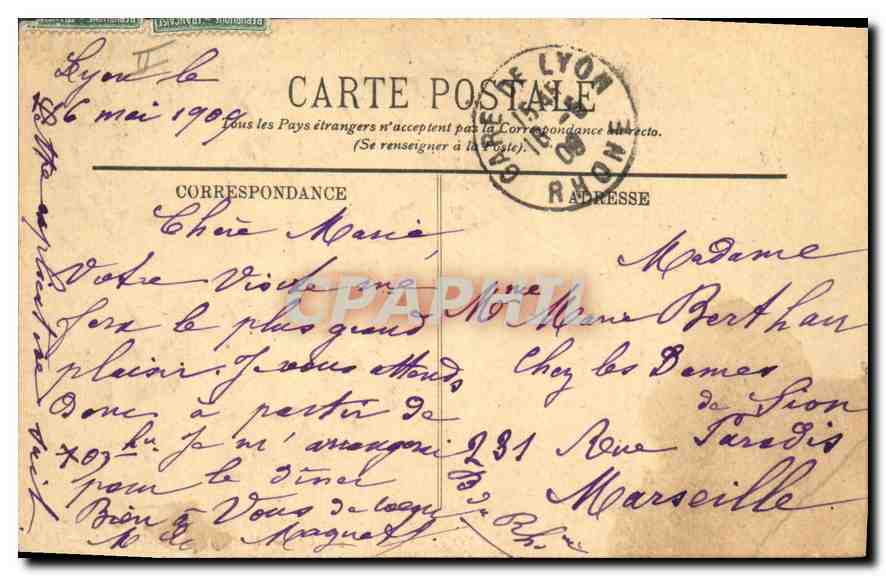 RÉPUBLIQUE FRANÇAISE
Lyon le
16 mai 1909
CARTE POSTALE
Tous les Pays étrangers n'acceptent pas la Correspondance au recto.
(Se renseigner à la Poste).
GARE DE LYON
RHONE
CORRESPONDANCE
ADRESSE
Chère Marie,
Votre visite me
fera le plus grand
plaisir. Je vous attends
donc à partir de
Je m'arrangerai
pour le dîner
Bien à Vous de coeur
M
Madame
Mme Marie Berthau
Chez les Dames
de Sion
231 Rue Paradis
Marseille
B du Rhône
CPAPHIL